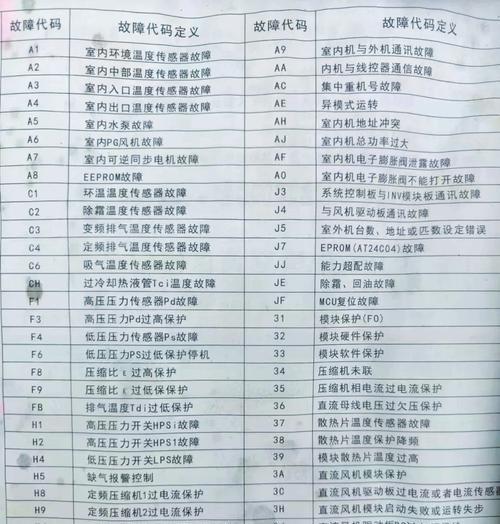 故障代码 故障代码定义 故障代码 故障代码定义
A1 室内环境温度传感器故障 A9 室内机与外机通讯故障
A2 室内中部温度传感器故障 AA 内机与线控器通信故障
A3 室内入口温度传感器故障 AC 集中重机号故障
A4 室内出口温度传感器故障 AE 异模式运转
A5 室内水泵故障 AH 室内机地址冲突
A6 室内PG风机故障 AJ 室内机总功率过大
A7 室内可逆同步电机故障 AF 室内机电子膨胀阀泄露故障
A8 EEPROM故障 A0 室内机电子膨胀阀不能打开故障
C1 环温温度传感器故障 J3 系统控制板与INV模块板通讯故障
C2 除霜温度传感器故障 J4 与风机驱动板通讯故障
C3 变频排气温度传感器故障 J5 室外机台数、地址或匹数设定错误
C4 定频排气温度传感器故障 J7 EPROM(AT24C04)故障
C6 吸气温度传感器故障 JJ 能力超配故障
CH 过冷却热液管Tci温度故障 JE 除霜、回油故障
F1 高压压力传感器Pd故障 JF MCU复位故障
F3 高压压力Pd过高保护 31 模块保护(FO)
F4 低压压力传感器Ps故障 32 模块硬件保护
F6 低压压力PS过低保护停机 33 模块软件保护
F8 压缩比ε过高保护 34 压缩机未联
F9 压缩比ε过低保护 35 压缩机相电流过电流保护
FB 排气温度Tdi过低保护 36 直流母线电压过欠压保护
H1 高压压力开关HPSi故障 37 散热片温度传感器故障
H2 高压压力开关HPS1故障 38 散热片温度保护降频
H4 低压压力开关LPS故障 39 模块散热片温度过高
H5 缺气报警控制 3A 直流风机模块保护
H8 定频压缩机1过电流保护 3C 直流风机驱动板过电流或者电流传感
H9 定频压缩机2过电流保护 3H 直流风机模块启动失败或运转失步